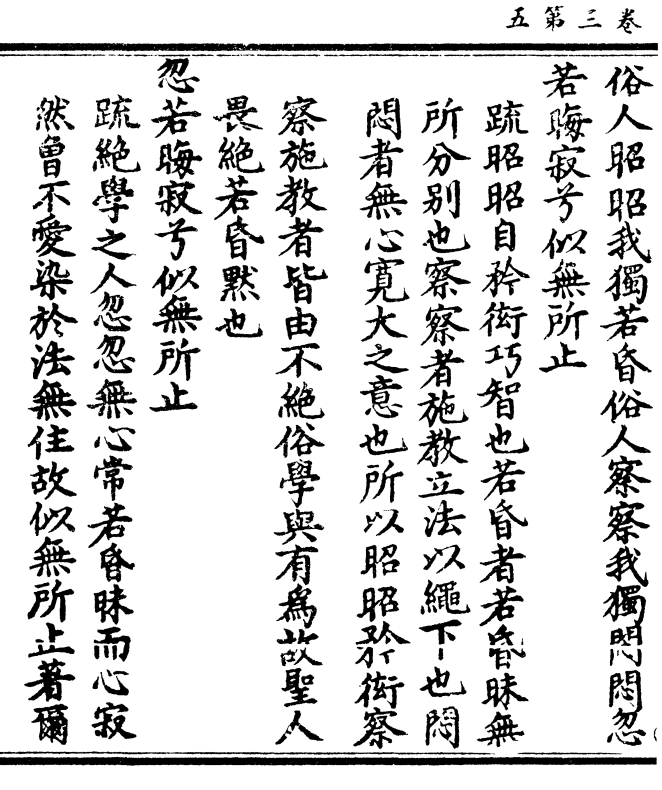 五第三卷
俗人昭昭我獨若昏俗人察察我獨悶悶忽
若晦寂兮似無所止
疏昭昭自矜衒巧智也若昏者若昏昧無
所分别也察察者施教立法以繩下也悶
悶者無心寬大之意也所以昭昭矜衒察
察施教者皆由不絶俗學與有爲故聖人
畏絶若昏默也
忽若晦寂兮似無所止
疏絶學之人忽忽無心常若昏昧而心寂
然曾不愛染於法無住故似無所止著爾